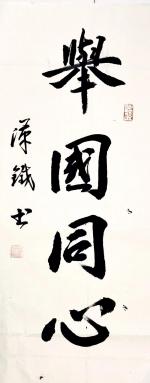 舉國同心
漢鐵書